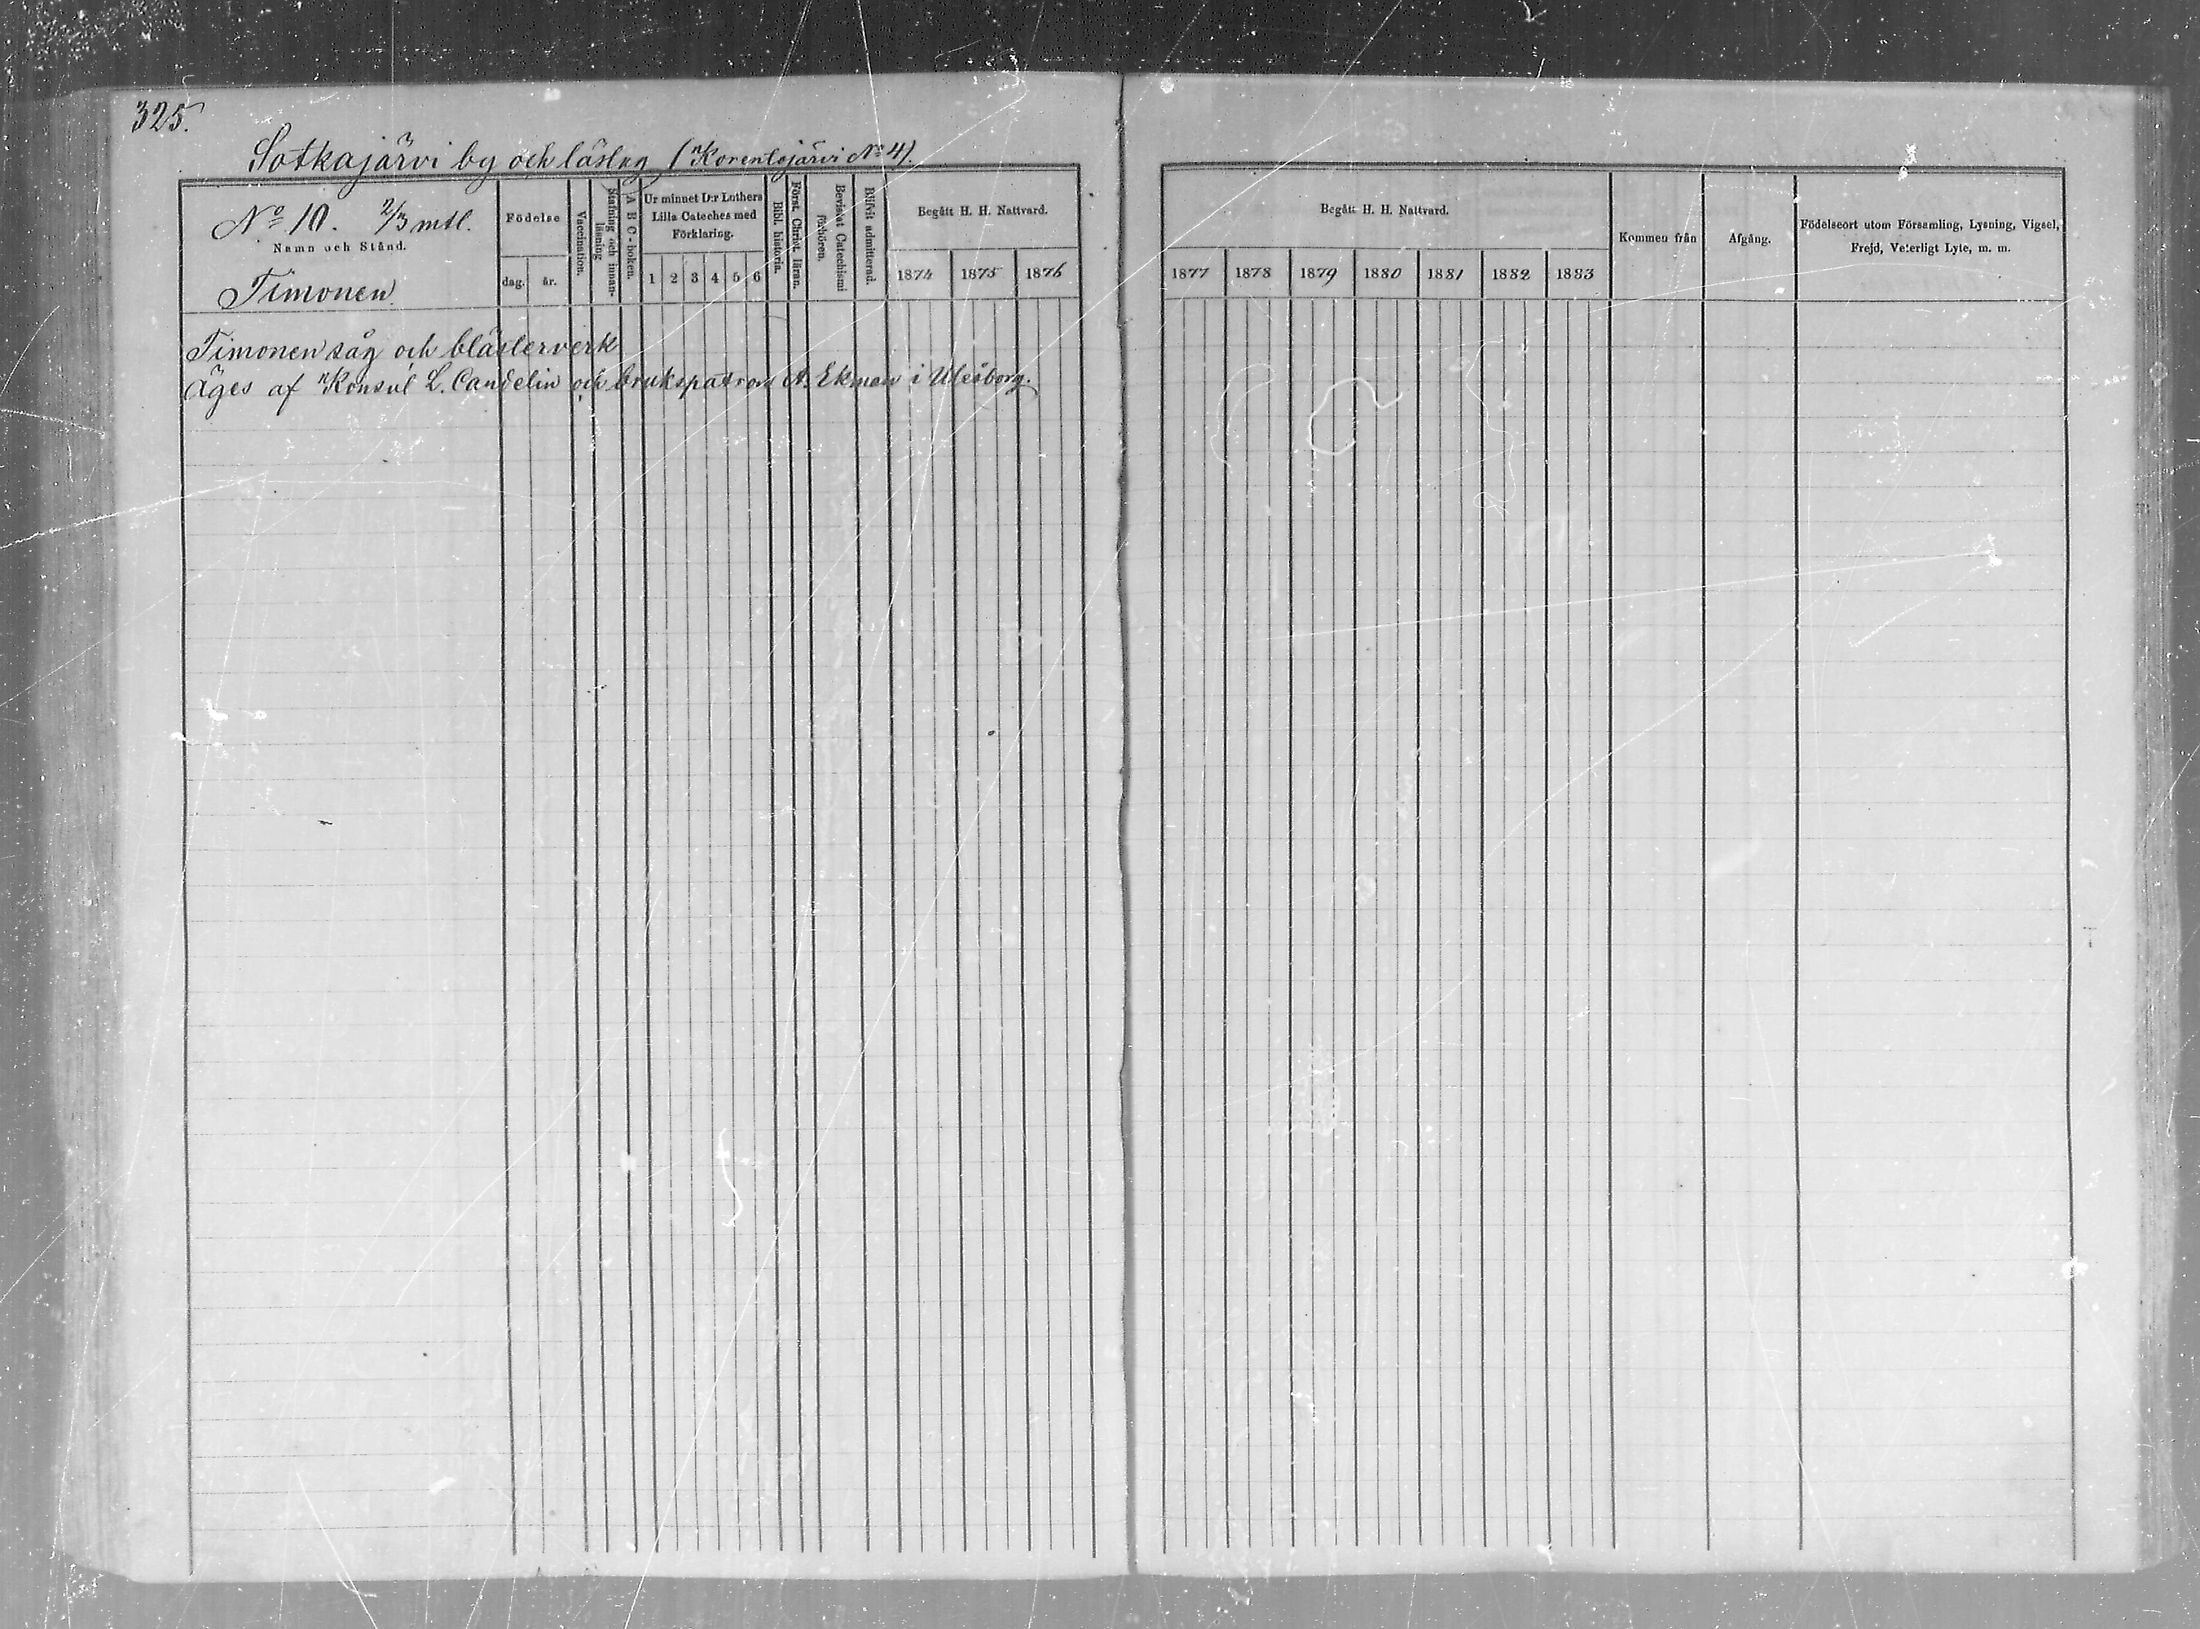 325.
Sotkajärvi by och läslag (Korentojärvi No 4).
No 10. 2/3 mtl.
Namn och Stånd.
Timonen
Födelse
dag.
år.
Vaccination.
Stafning och innan-
läsning
A B C-boken.
Ur minnet D:r Luthers
Lilla Cateches med
Förklaring.
1 2 3 4 5 6
Bibl. historia.
Först. Christ. läran.
Bevistat Catechismi
förhören.
Blifvit admitterad.
Begått H. H. Nattvard.
1874 1875 1876
Begått H. H. Nattvard.
1877 1878 1879 1880 1881 1882 1883
Kommen från
Afgång.
Födelseort utom Församling, Lysning, Vigsel,
Frejd, Veterligt Lyte, m. m.
Timonen såg och blästerverk
Äges af Konsul L. Candelin och brukspatron A. Ekman i Uleåborg.